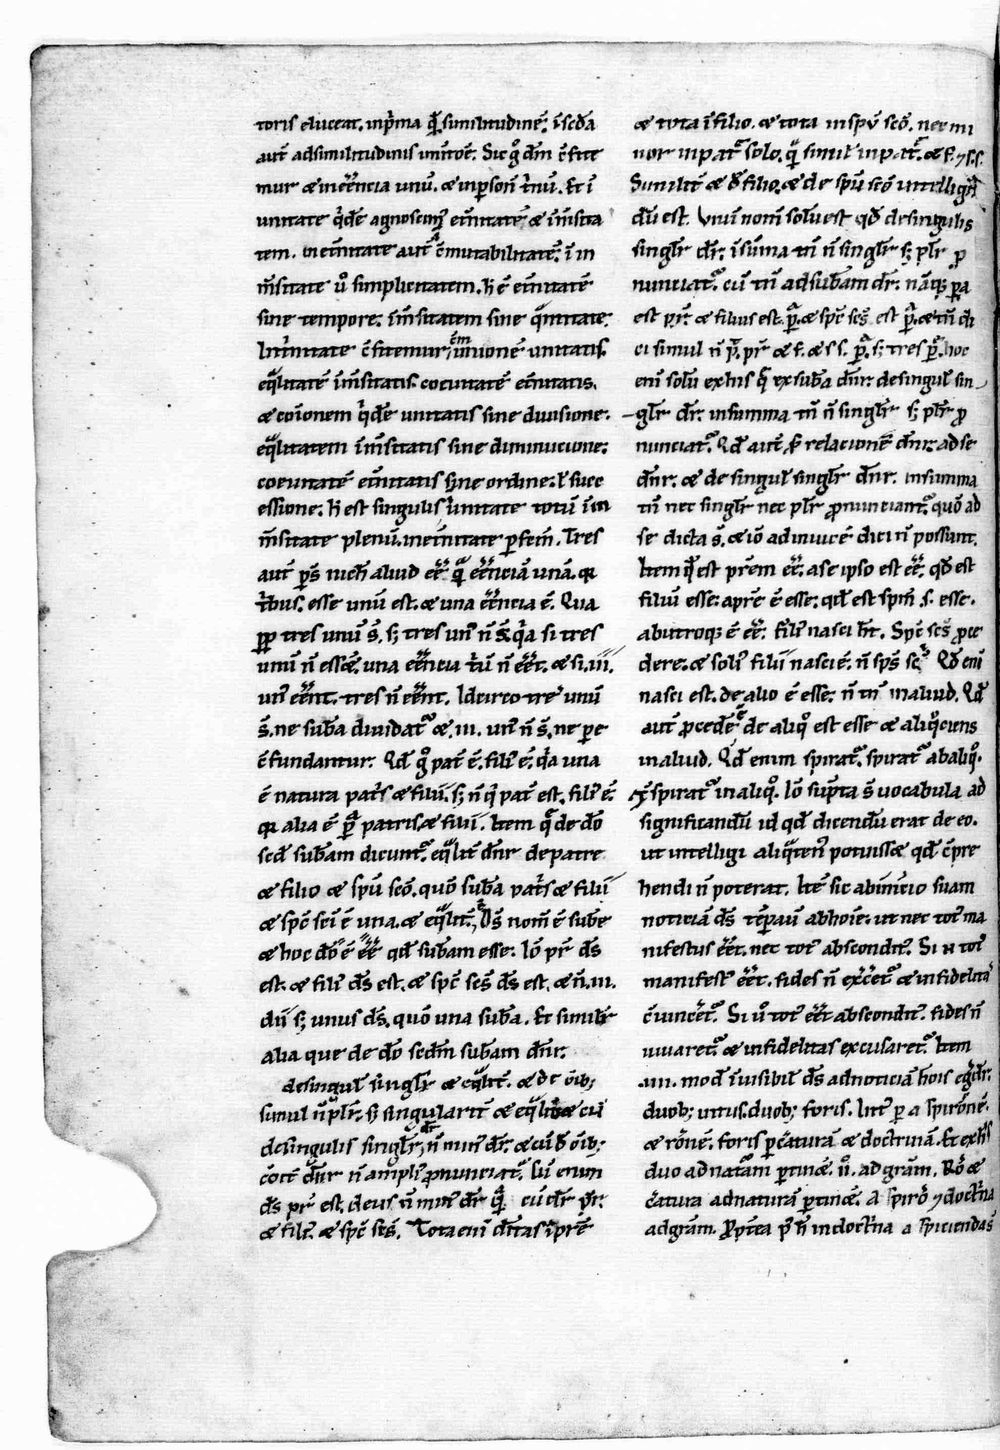 toris eluceat. inp̄ma q̄ similitudinē. ī sc̄da
aut̄ adsimilitudinis imitōē. Sic g̊ dm̄ c̄fite
mur & in ēēncia unū. & inp̄son̄ t̄nū. Et ī
unitate q̇dē agnoscim᷒ et̄nitatē & īm̄sita
tem. in et̄nitate aut̄ īc̄mutabilitatē. ī in
m̄sitate ů simplicitatem. h̄ ē et̄nitatē
sine tempore. īm̄sitatem sine q̄ntitate.
In t̄nitate c̄fitemur cōmunionē unitatis.
eq̄litatē īm̄sitatis. coeuitatē et̄nitatis.
& coīonem q̇dē unitatis sine diuisione.
eq̄litatem īm̄sitatis sine diminucione.
coeuitatē et̄nitatis sine ordine. ł succ
essione. h̄ est singulis unitate totū im
m̄sitate plenū. in et̄nitate p̄fcm̄. Tres
aut̄ p̄s nich̄ aliud ēē. q̄ ēēnciā unā.
t̄bus. esse unū est. & una ēēncia ē. Qua
pp̄ tres unū s̄. s; tres un᷒ n̄ s̄. q̇a si tres
unū n̄ essēt. una ēēncia t̄ū n̄ ēēt. & si .iii.
un᷒ ēēnt. tres n̄ ēēnt. Idcirco tres unū
s̄. ne sub̄a diuidat᷑. & .iii. un᷒ n̄ s̄. ne p̄e
c̄fundantur. Qd̄ g̊ pat̄ ē. fili᷒ ē. q̇a una
ē natura pat̄s & filii. s; n̄ q̇ pat̄ est. fili᷒ ē.
q̇ alia ē p̄ patris. & filii. Item q̄ de dō
scd̄ sub̄am dicunt᷑. eq̄lit̄ dn̄r de patre
& filio & spū scō. quō sub̄a pat̄s & filii
& spc̄ sc̄i ē una. & eq̄lit̄. Ds̄ nom̄ ē sub̄e
& hoc dō ē ēē qd̄ sub̄am esse. Iō pr̄ ds̄
est. & fili᷒ ds̄ est. & spc̄ scs̄ ds̄ est. & n̄ .iii.
dii s; unus ds̄. quō una sub̄a. Et similit̄
alia que de dō scdm̄ sub̄am dn̄r.
de singul̄ singl̄r & eq̄lit̄. & de oīb;
simul n̄ pl̄r. s; singularit̄ & eq̄lit̄ & cū
de singulis singl̄r dr̄ n̄ min᷒ dr̄. & cū d̄ oīb;
cōit̄ dn̄r n̄ ampli᷒ pronunciat᷑. Cū enim
ds̄ pr̄ est. deus n̄ min᷒ dr̄ q̄ cū dr̄ pr̄.
& fili᷒. & spc̄ scs̄. Tota eni dītas ī prē
& tota ī filio. & tota in spū scō. nec mi
nor in pat̄ solo. q̄ simul in pat̄. & f. ⁊ s.s.
Similit̄ & d̄ filio. & de spū scō intelligēn
dū est. Unū nom̄ solū est qd̄ de singulis
singl̄r dr̄. ī sūma tn̄ n̄ singl̄r s; pl̄r p̄
nunciat᷑. cū tn̄ ad sub̄am dr̄. nāq; p̄a
est pr̄. & filius est. p̄a. & spc̄ scs̄ est p̄a. & tn̄ di
ci simul n̄ p̄a. pr̄ & f. & s s. p̄a. s; tres p̄e. hoc
eni solū ex his q̄ ex sub̄a dn̄r. de singul̄ sin
gl̄r dr̄. in summa tn̄ n̄ singl̄r s; pl̄r p̄
nunciat᷑. Qd̄ aut̄ p̄ relacionē dn̄r. ad se
dn̄r. & de singul̄ singl̄r dn̄r. in summa
tn̄ nec singl̄r nec pl̄r pronunciant᷑. quō ad
se dicta s̄. & iō ad inuicē dici n̄ possunt.
Item q̄ est pr̄em ēē. a se ipso est ēē. qd̄ est
filiū esse. a prē ē esse. qd̄ est spm̄ .s. esse.
ab utroq; ē ēē. Fili᷒ nasci h̄t. Spc̄ scs̄ p̄ce
dere. & soli᷒ filii nasci ē. n̄ sps̄ sci Qd̄ eni
nasci est. de alio ē esse. n̄ tn̄ in aliud. Qd̄
aut̄ p̄cedē de aliq̊ est esse & aliq̊ciens
in aliud. Qd̄ enim spirat᷑. spirat᷑ ab aliq̊.
& spirat᷑ in aliq̊. Iō sup̄ta s̄ uocabula ad
significandū id qd̄ dicendū erat de eo.
ut intelligi aliq̄ten᷒ potuisset qd̄ c̄pre
hendi n̄ poterat. Itē sic ab inicio suam
noticiā ds̄ tēpauit ab hoīe. ut nec tot᷒ ma
nifestus ēēt. nec tot᷒ abscondit᷒. Si n̄ tot᷒
manifest᷒ ēēt. fides n̄ ex̄cēt᷑ & infidelitas
c̄uincet᷑. Si ů tot᷒ ēēt abscondit᷒. fides n̄
iuuaret᷑. & infidelitas excusaret᷑. Item
.iiii. mod̄ īuisibil̄ ds̄ ad noticiā hoīs egr̄dr̄.
duob; intus. duob; foris. Int᷒ p a spirōnē.
& rōnē. foris p c̄aturā & doctrinā. Et ex his
duo ad natām p̄tinēt. ii. ad grām. Rō &
c̄atura ad naturā p̄tinēt. a spirō ⁊ doctrīa
ad grām. Pp̄tea p̄ h̄ in doctrīa a spiciendas